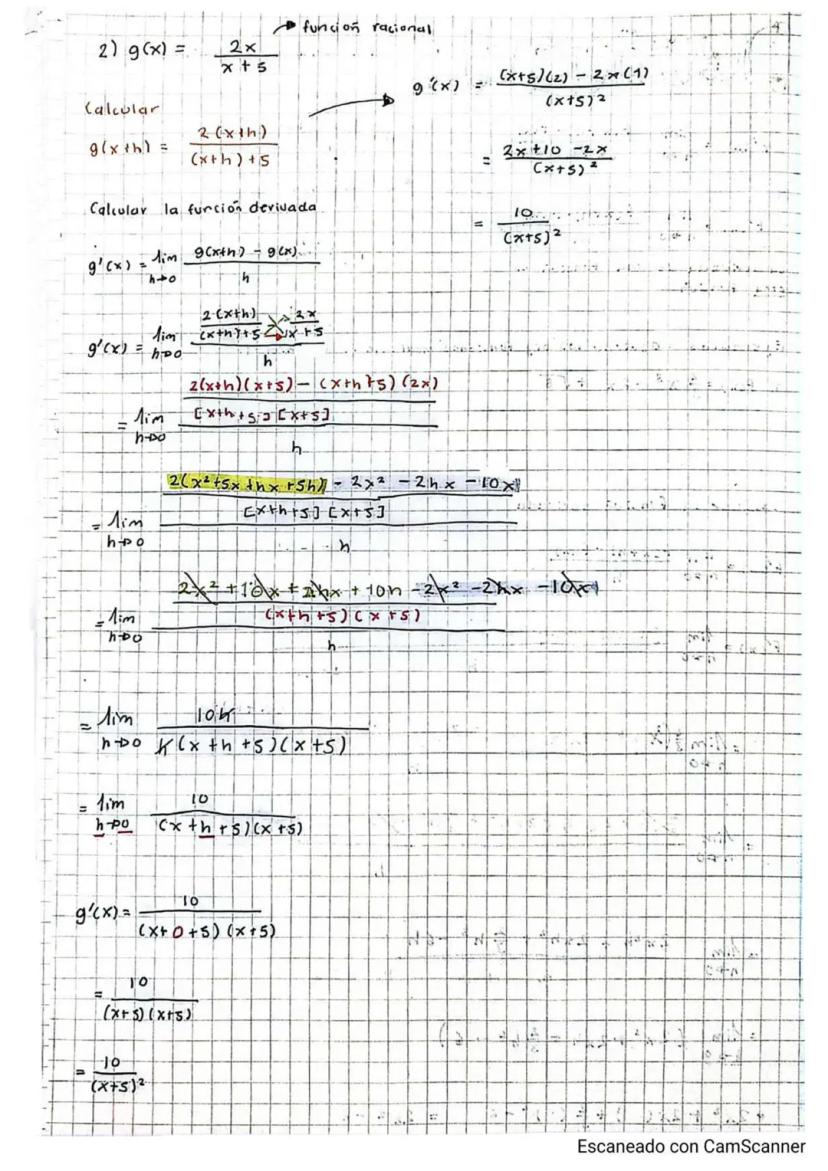 → función racional
2) g(x) = 2x / x + 5
Calcular
g(x+h) = 2(x+h) / (x+h)+5
g'(x) = (x+5)(2) - 2x(1) / (x+5)²
= 2x+10-2x / (x+5)²
= 10 / (x+5)²
Calcular la función derivada
g'(x) = lim h→0 g(x+h) - g(x) / h
g'(x) = lim h→0 2(x+h) / (x+h)+5 - 2x / x+5 / h
= lim h→0 2(x+h)(x+5) - (x+h+5)(2x) / [x+h+5][x+5] / h
= lim h→0 2(x²+5x+hx+5h) - 2x² - 2hx - 10x / [x+h+5][x+5] / h
= lim h→0 2x² + 10x + 2hx + 10h - 2x² - 2hx - 10x / (x+h+5)(x+5) / h
= lim h→0 10h / h(x+h+5)(x+5)
= lim h→0 10 / (x+h+5)(x+5)
g'(x) = 10 / (x+0+5)(x+5)
= 10 / (x+5)(x+5)
= 10 / (x+5)²
Escaneado con CamScanner